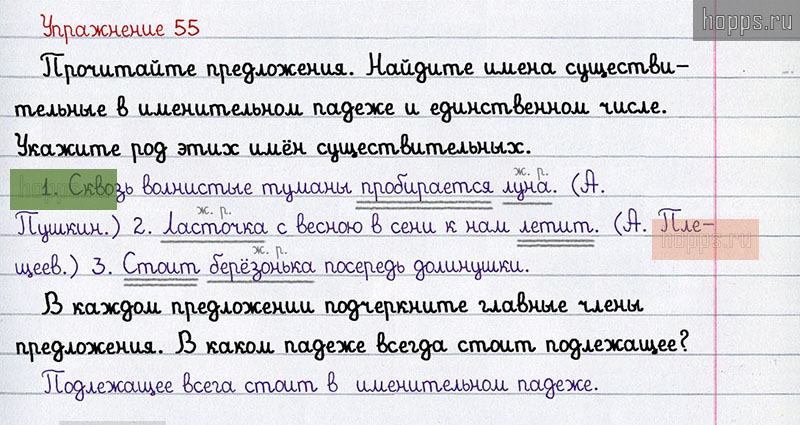 hopps.ru
Упражнение 55
Прочитайте предложения. Найдите имена существи-
тельные в именительном падеже и единственном числе.
Укажите род этих имён существительных.
ж. р.
1. Сквозь волнистые туманы пробирается луна. (А.
ж. р.
Пушкин.) 2. Ласточка с весною в сени к нам летит. (А. Пле-
ж. р.
щеев.) 3. Стоит берёзонька посередь долинушки.
В каждом предложении подчеркните главные члены
предложения. В каком падеже всегда стоит подлежащее?
Подлежащее всега стоит в именительном падеже.